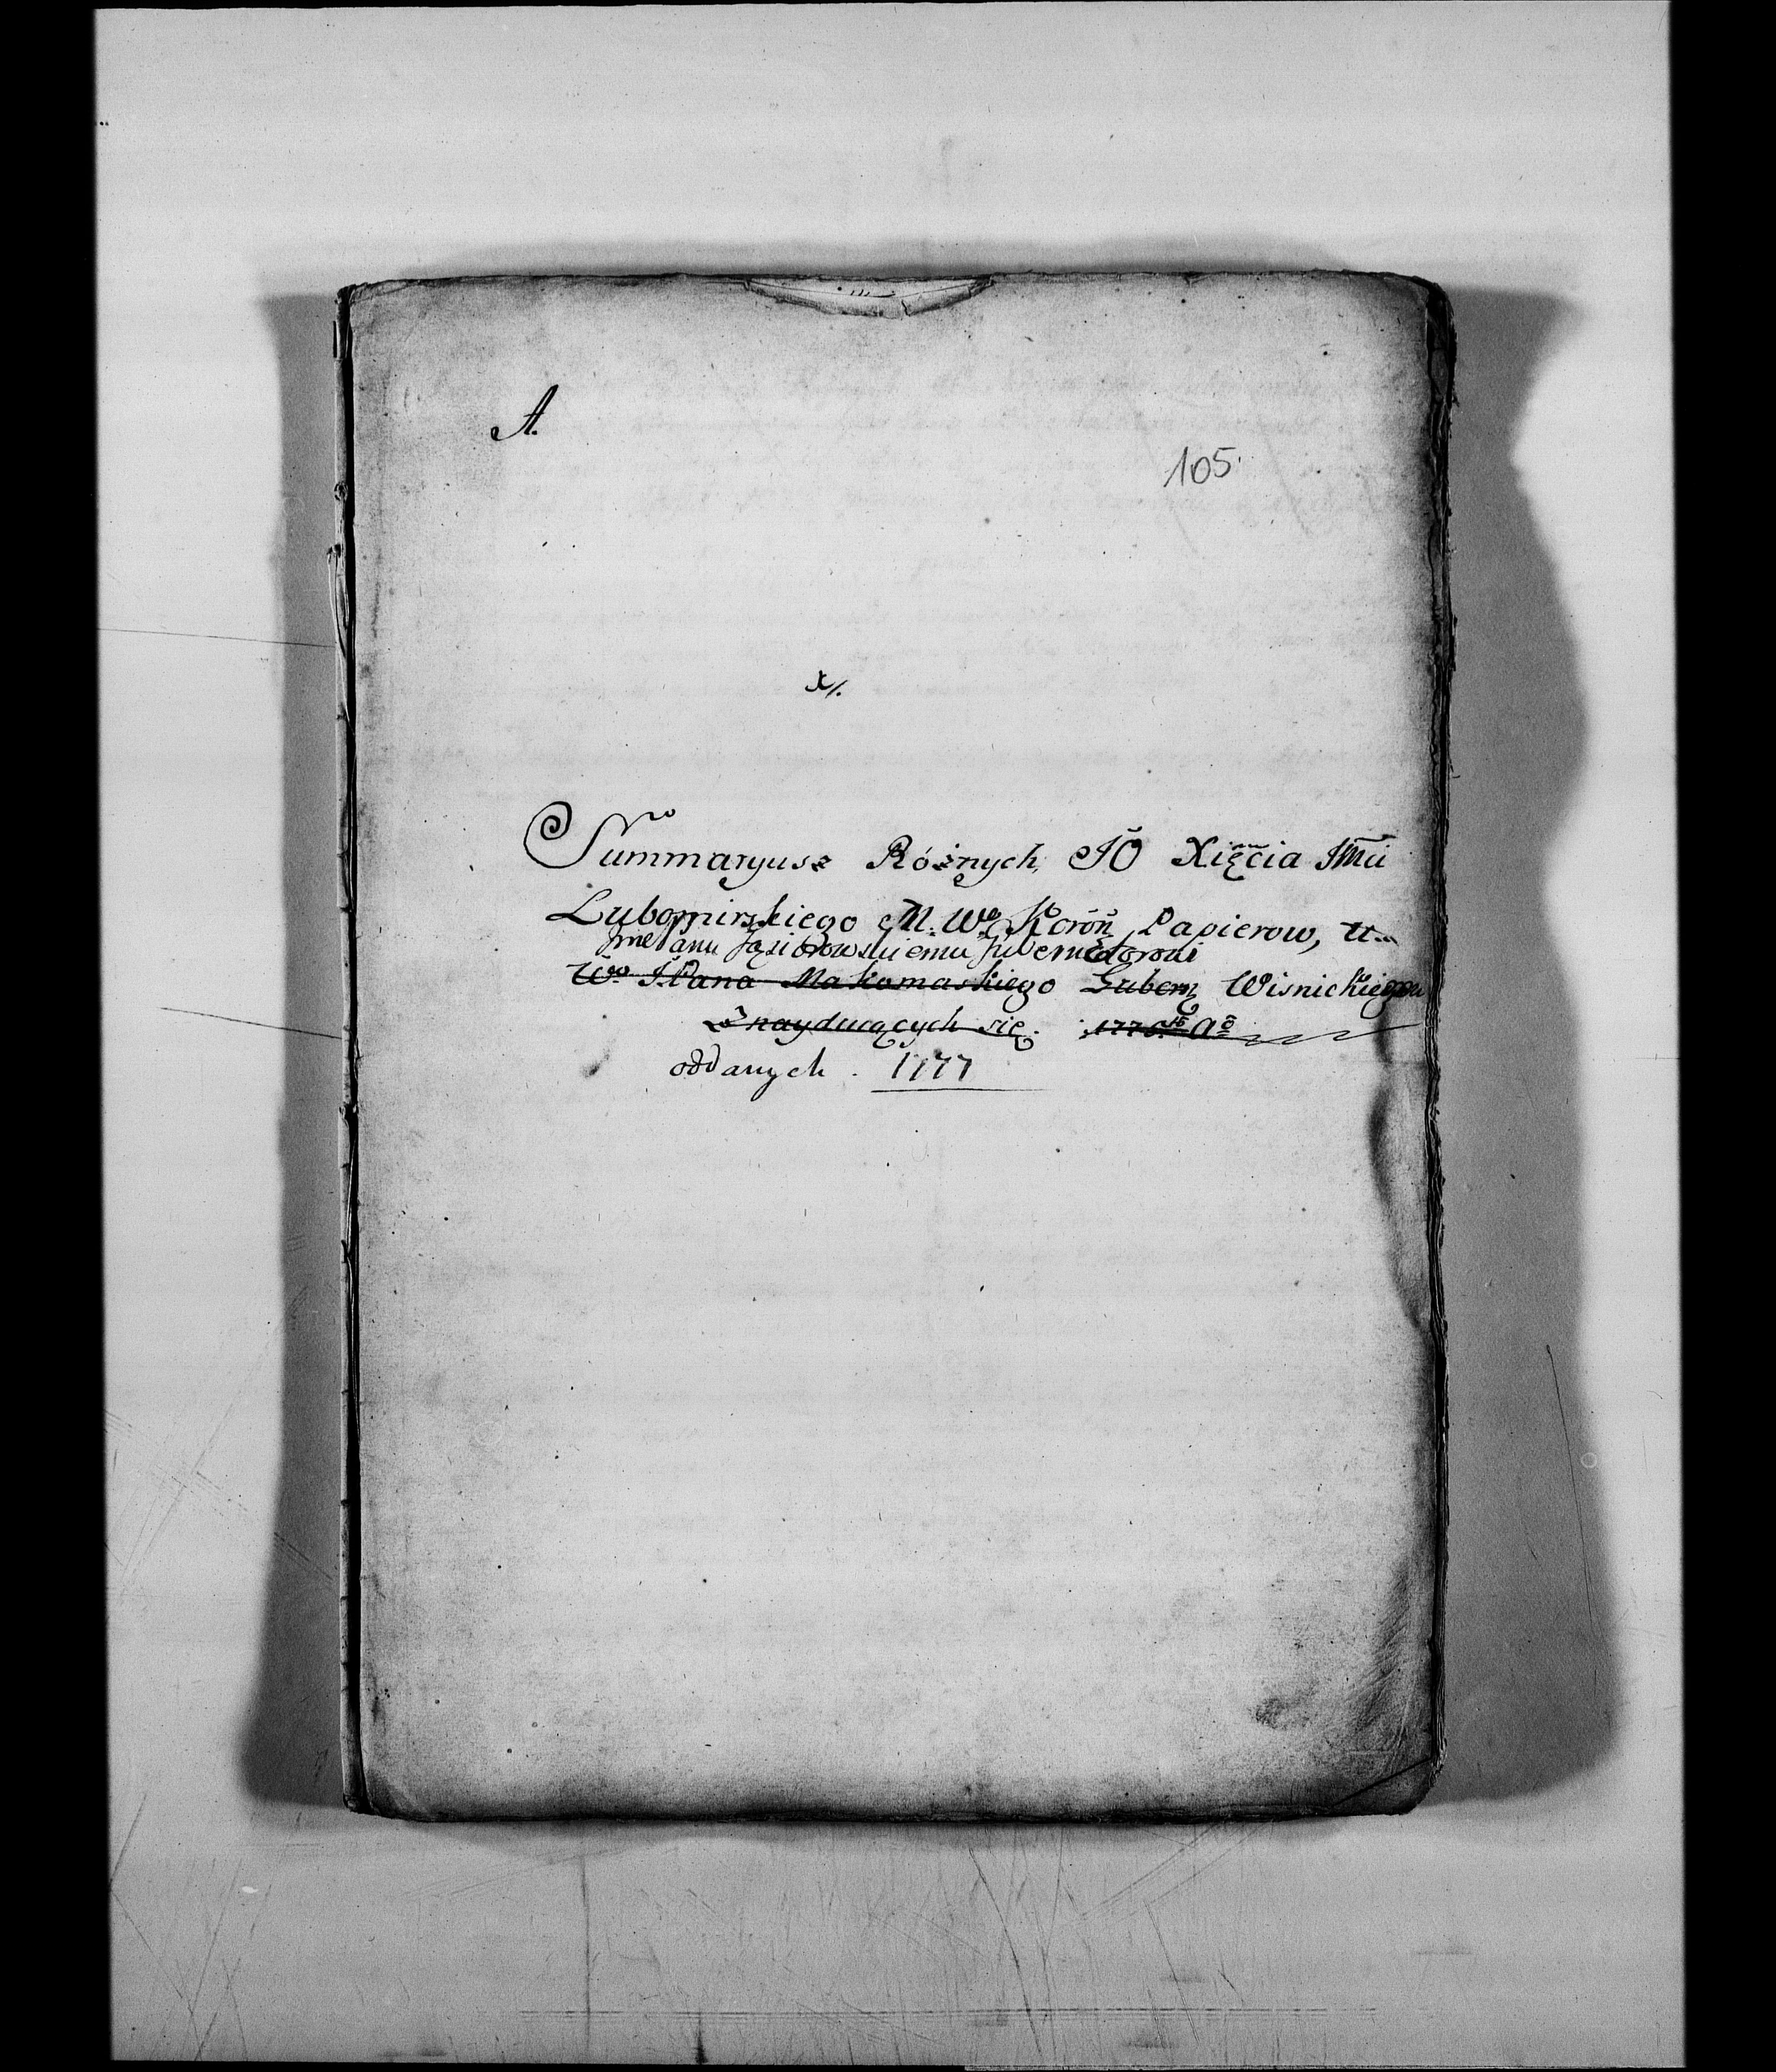 A.
105.
x/.
Summaryusz Różnych JO Xięcia Jmci
Lubomirskiego M: Wo Koroñ Papierow, u
Jmć Panu Gubernatorowi
Wgo JPana Makomaskiego Gubern Wisnickiego
znayduiących się. 1776to Ao
oddanych. 1777